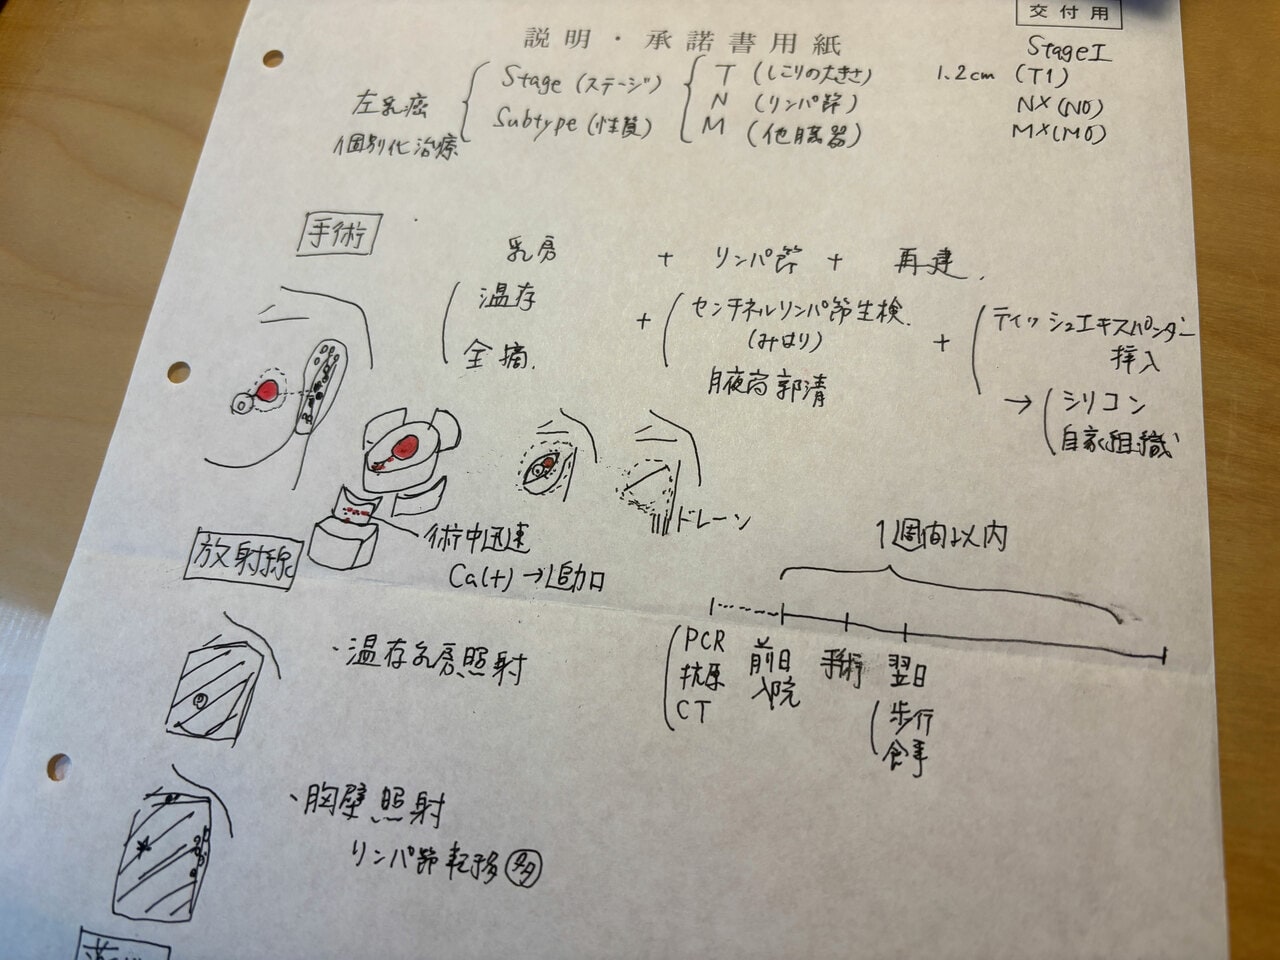 交付用
説明・承諾書用紙
StageⅠ
左乳癌
個別化治療
Stage (ステージ)
Subtype (性質)
T (しこりの大きさ) 1.2cm (T1)
N (リンパ節) NX (N0)
M (他臓器) MX (M0)
手術
乳房 + リンパ節 + 再建
温存
全摘
+
センチネルリンパ節生検
(みはり)
腋窩郭清
+
ティッシュエキスパンダー
挿入
→ シリコン
自家組織
ドレーン
術中迅速
Ca(+) → 追加
放射線
・温存乳房照射
1週間以内
PCR
抗原
CT
前日
入院
手術
翌日
歩行
食事
・胸壁照射
リンパ節転移 多